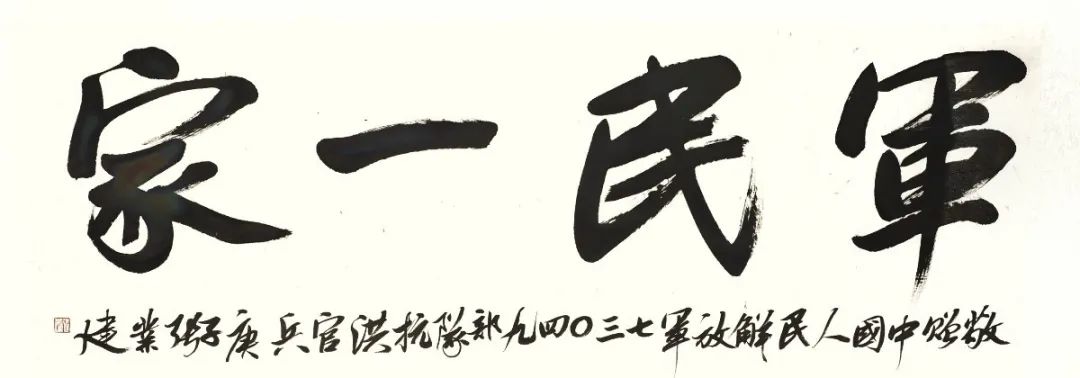 軍民一家
敬贈中國人民解放軍七三〇四九部隊抗洪官兵庚子張業建